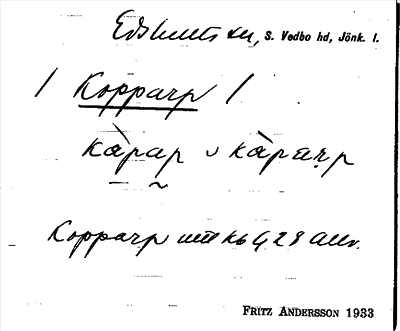 Edshults sn, S. Vedbo hd, Jönk. l.
/ Kopparp /
kàpap ∪ kàparp
Kopparp mtl kb G 29 allv.
FRITZ ANDERSSON 1933